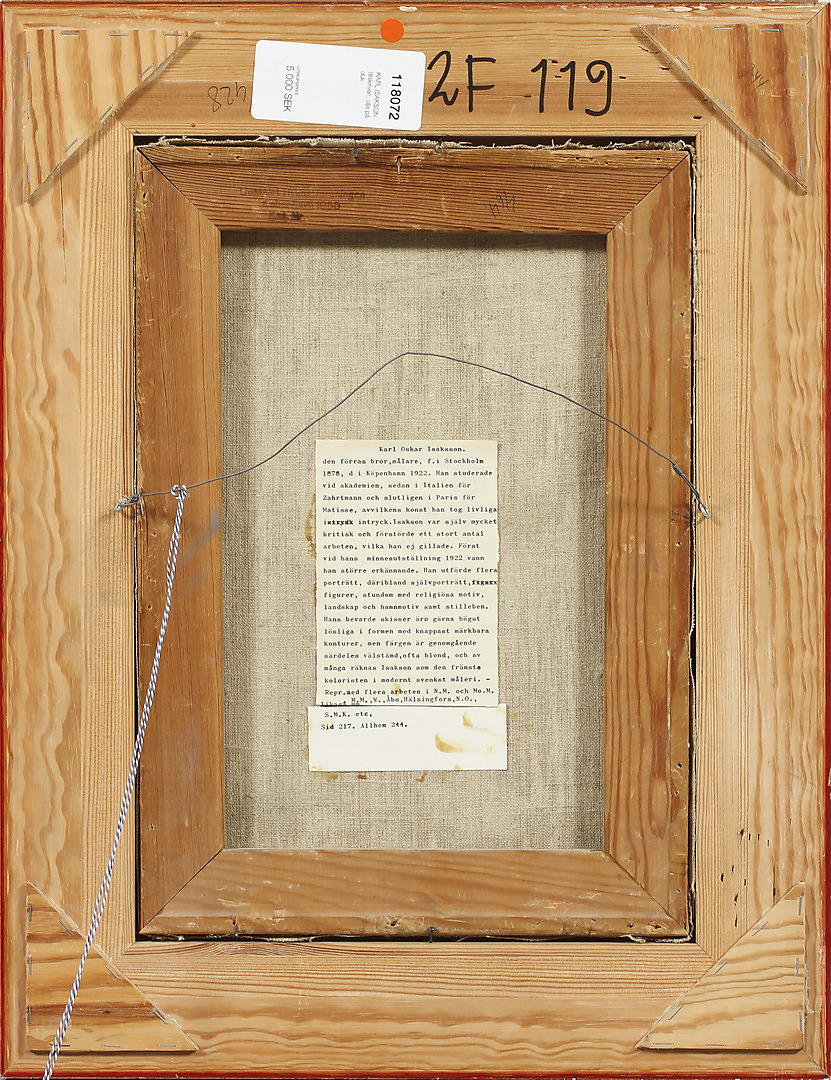 118072
KARL ISAKSON
tillskriven, olja på
duk
UTROPSPRIS
5 000 SEK
2F 119
428
Karl Oskar Isaksson.
den förras bror,målare, f.i Stockholm
1878, d i Köpenhamn 1922. Han studerade
vid akademien, sedan i Italien för
Zahrtmann och slutligen i Paris för
Matisse, avvilkens konst han tog livliga
intryck.Isakson var själv mycket
kritisk och förstörde ett stort antal
arbeten, vilka han ej gillade. Först
vid hans minnesutställning 1922 vann
han större erkännande. Han utförde flera
porträtt, däribland självporträtt,
figurer, stundom med religiösa motiv,
landskap och hamnmotiv samt stilleben.
Hans bevarde skisser äro gärna högst
lösliga i formen med knappast märkbara
konturer, men färgen är genomgående
särdeles välstämd,ofta blond, och av
många räknas Isakson som den främste
koloristen i modernt svenkst måleri. -
Repr.med flera arbeten i N.M. och Mo.M.
M.M.,W.,Åbo,Hälsingfors,N.O.,
S.M.K. etc,
Sid 217. Allhem 244.